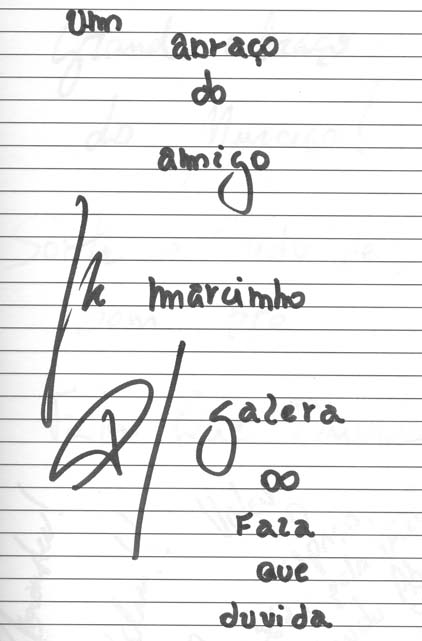 um
abraço
do
amigo
marcinho
P/ galera
do
Fala
que
duvida